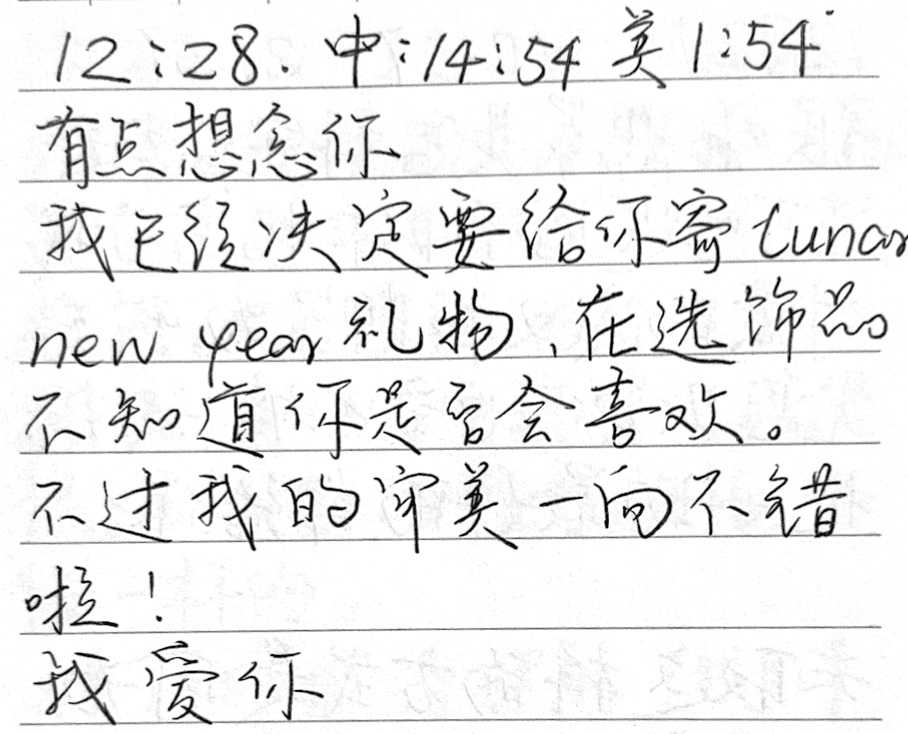 12:28. 中:14:54 美1:54
有点想念你
我已经决定要给你寄 lunar
new year 礼物、在选饰品
不知道你是否会喜欢。
不过我的审美一向不错
啦！
我爱你